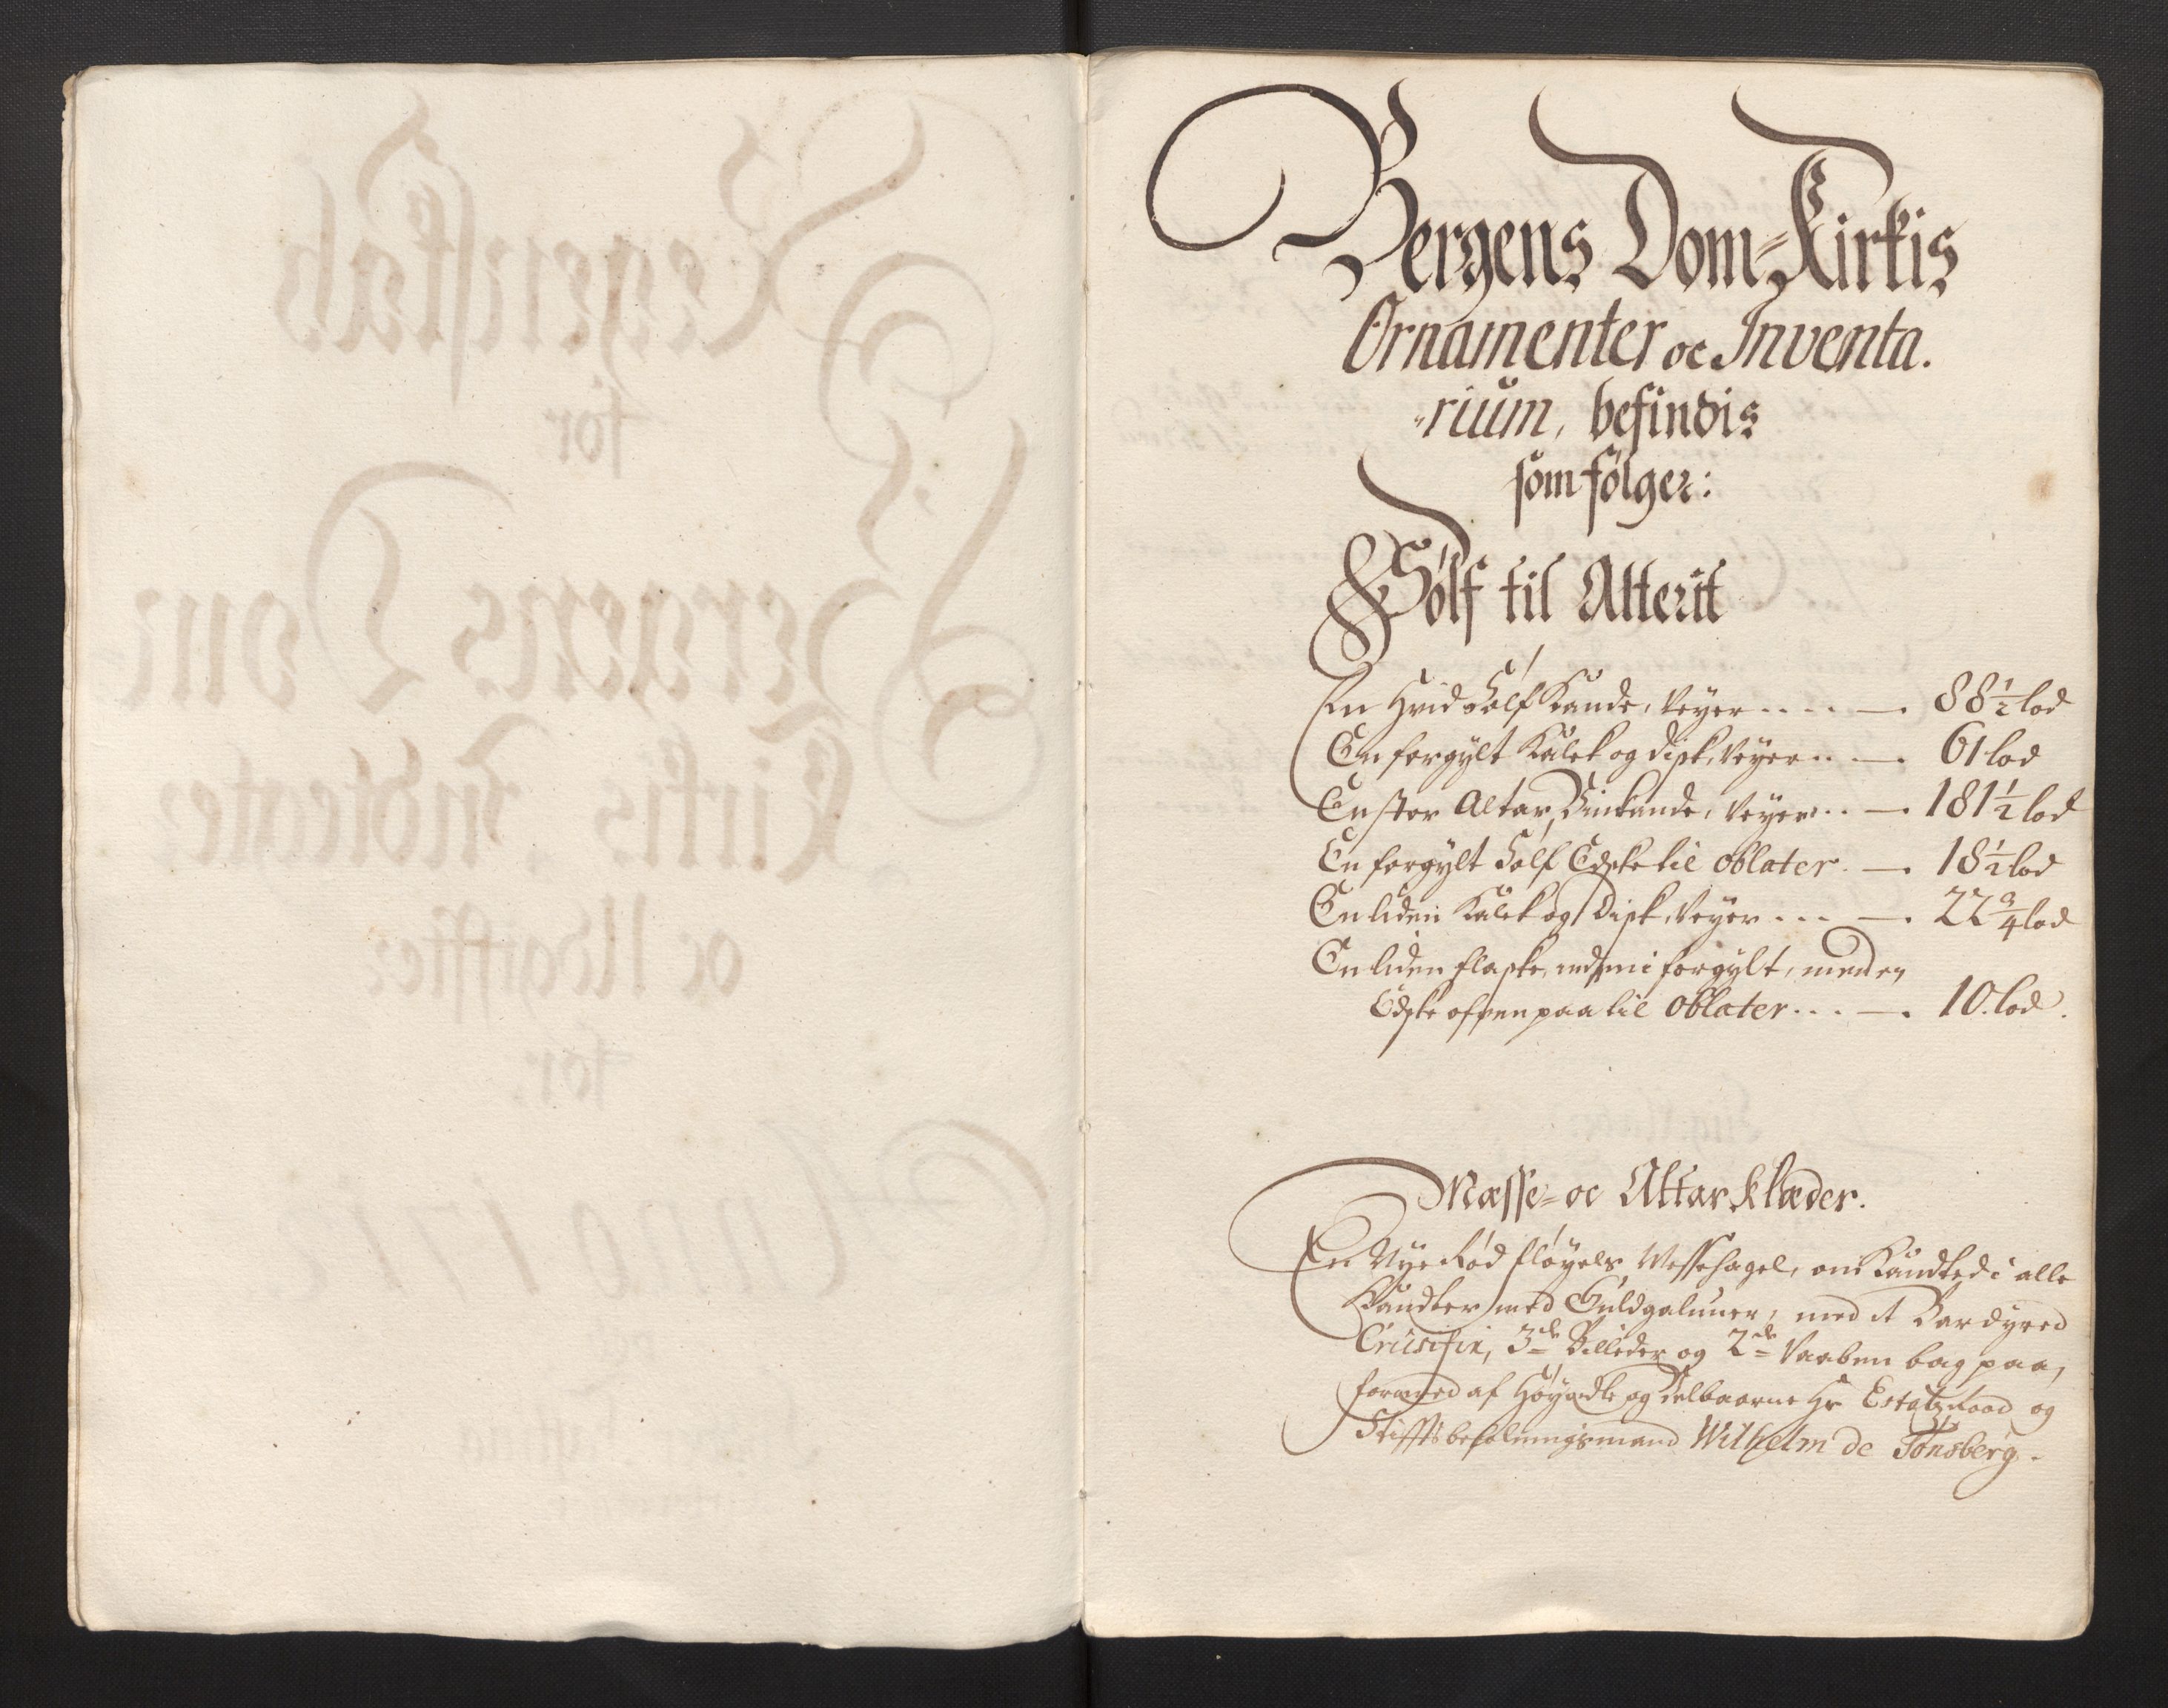 Bergens Dom-Kirkis
Ornamenter oc Inventa.
-rium, befindis
som følger:
Sølf til Alterit
En Hvid Sølf Kande, Veyer .... — . 88 1/2 lod
En forgylt Kalck og disk, Veyer .. — . 61 lod
En stor Altar Viinkande, Veyer .. — . 181 1/2 lod
En forgylt Sølf Edske til oblater . — . 18 1/2 lod
En liden Kalck og Disk, Veyer ... — . 22 3/4 lod
En liden flaske, inden i forgylt, med en
Edske ofven paa til oblater ... — . 10. lod.
Mæsse- oc Altarklæder.
En Nye Rød fløyels Messehagel, om Kandted i alle
Kandter med Guldgaluner, med it Bardyred
Crusifix, 3de Billeder og 2de Vaaben bag paa,
foræred af Høyædle og Velbaarne Hr Estatzraad og
Stifftsbefalningsmand Wilhelm de Tønsberg.